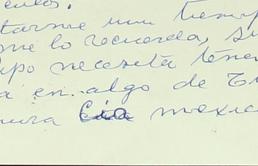 tarme un tiemp
me lo recuerda, su
po necesita tene
a en algo de
ura Cia mexic